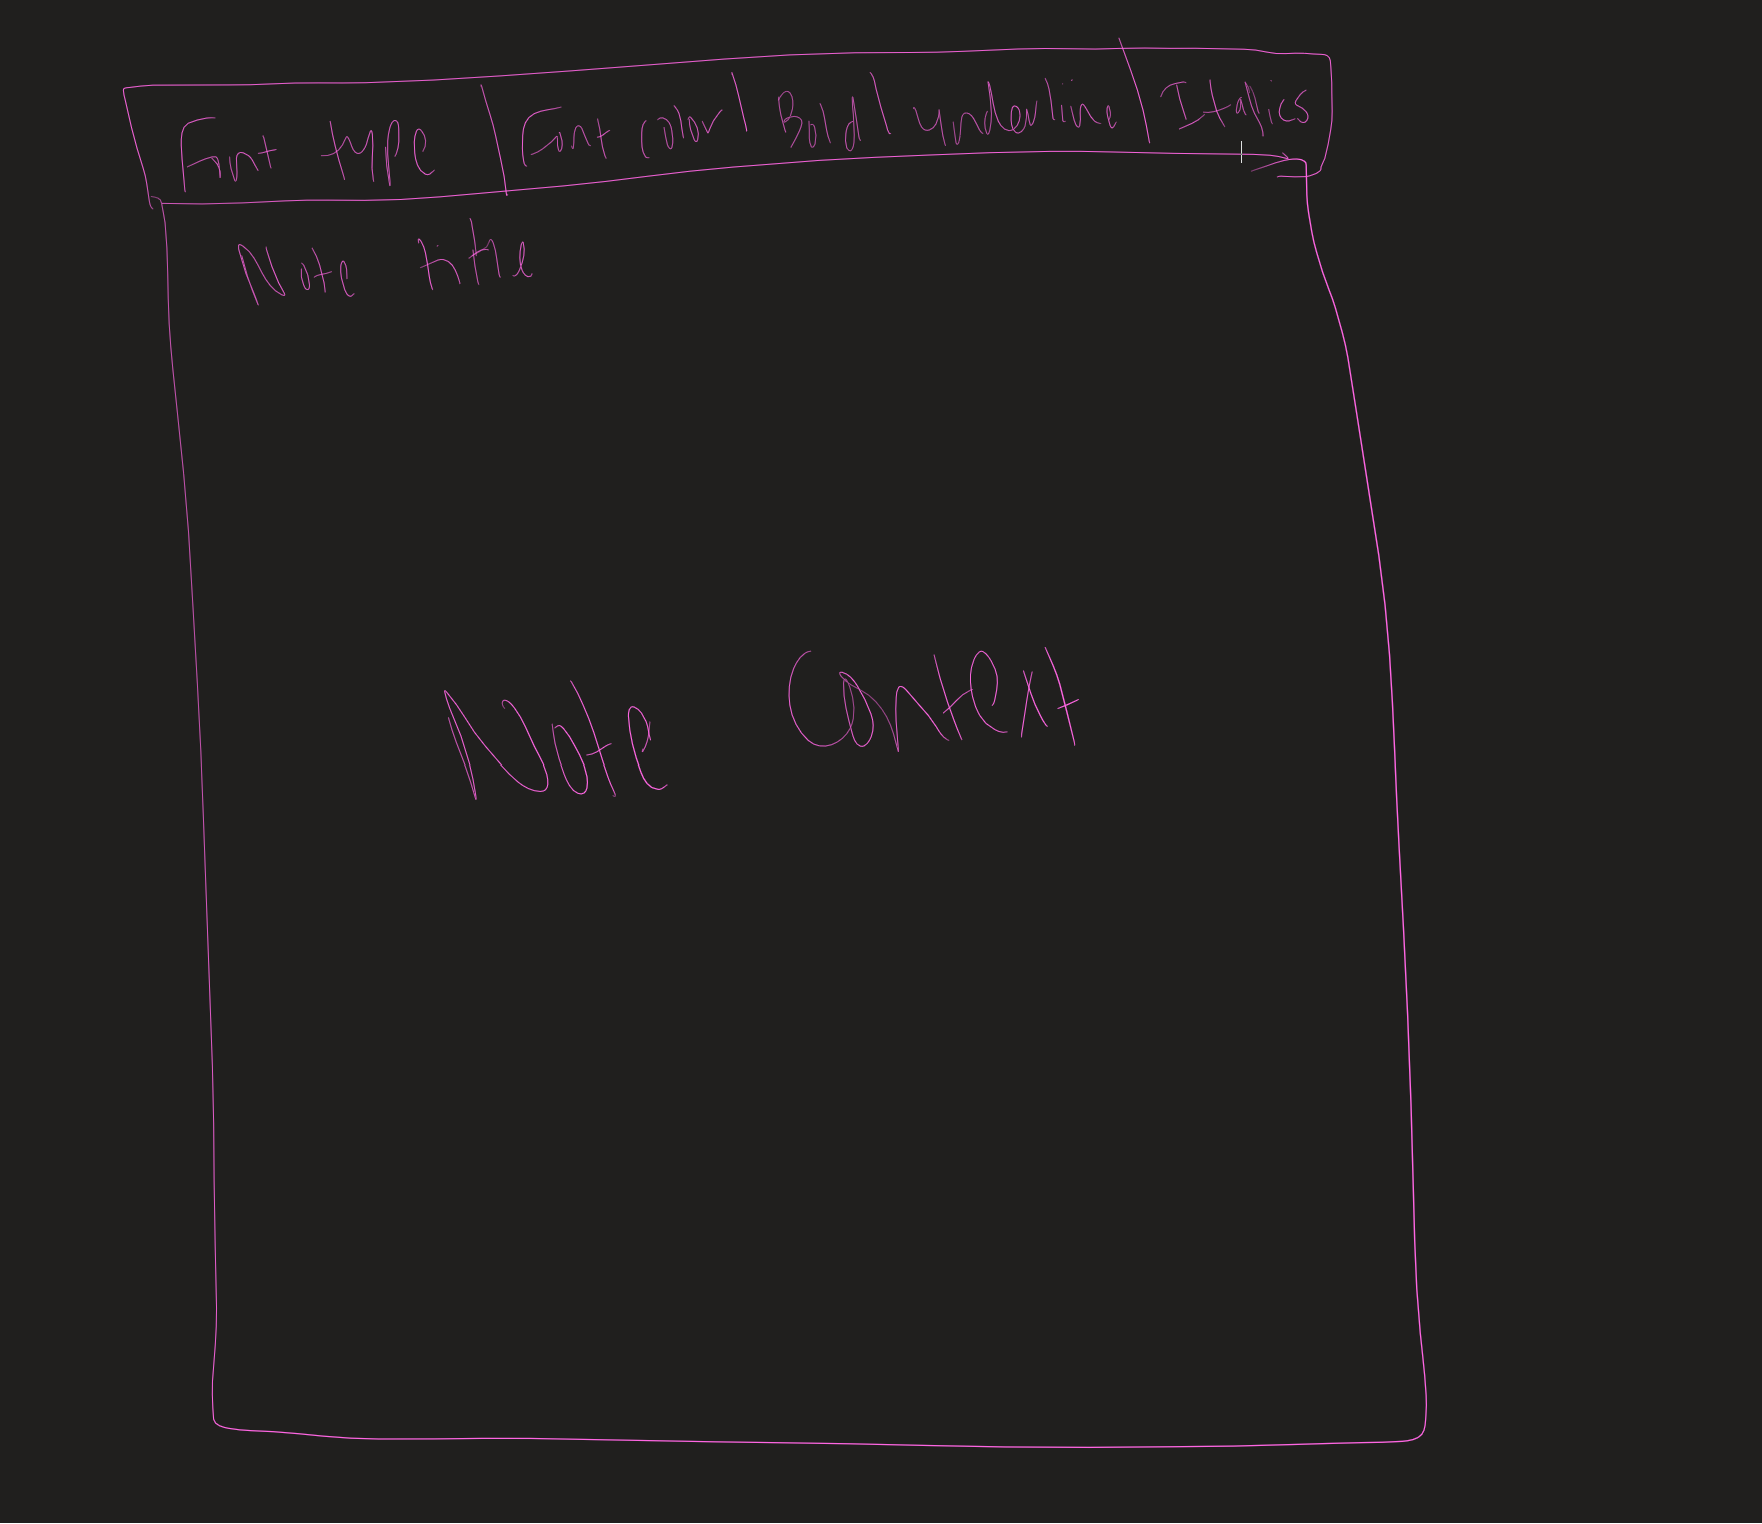 Font type Font color Bold underline Italics
Note title
Note Context